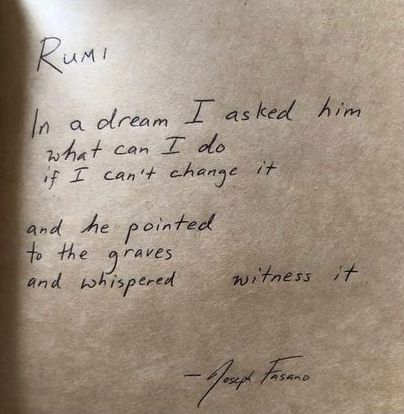 Rumi
In a dream I asked him
what can I do
if I can't change it
and he pointed
to the graves
and whispered witness it
— Joseph Fasano